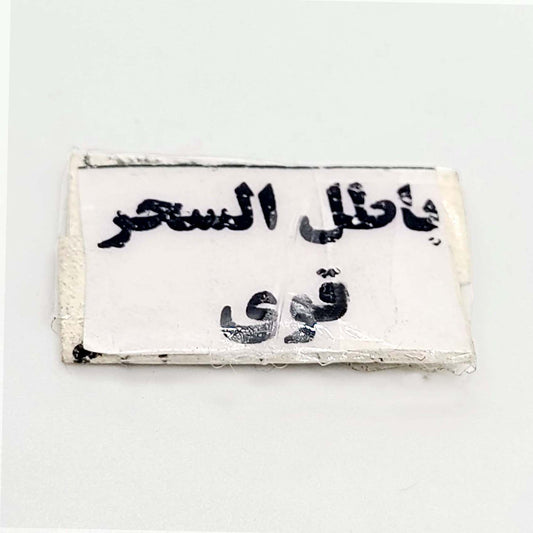 باطل السحر
قوى